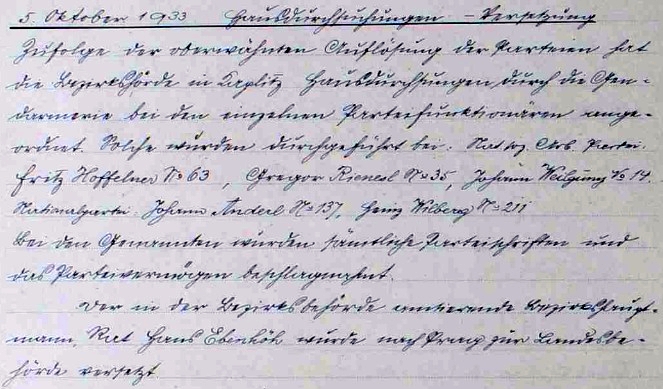 5. Oktober 1933 Hausdurchsuchungen – Versetzung
Zufolge der oberwähnten Auflösung der Parteien hat
die Bezirksbehörde in Kaplitz Hausdurchsungen durch die Gen-
darmerie bei den einzelnen Parteifunktionären ange-
ordnet. Solche wurden durchgeführt bei: Nat. soz. Arb. Partei:
Fritz Hoffelner No 63, Gregor Rienesl No 35, Johann Weilguny No 14.
Nationalpartei: Johann Anderl No 137, Heinz Wilberg No 211
Bei den Genannten wurden sämtliche Parteischriften und
das Parteivermögen beschlagnahmt.
Der in der Bezirksbehörde amtierende Bezirkshaupt-
mann, Rat Hans Ebenhöh wurde nach Prag zur Landesbe-
hörde versetzt